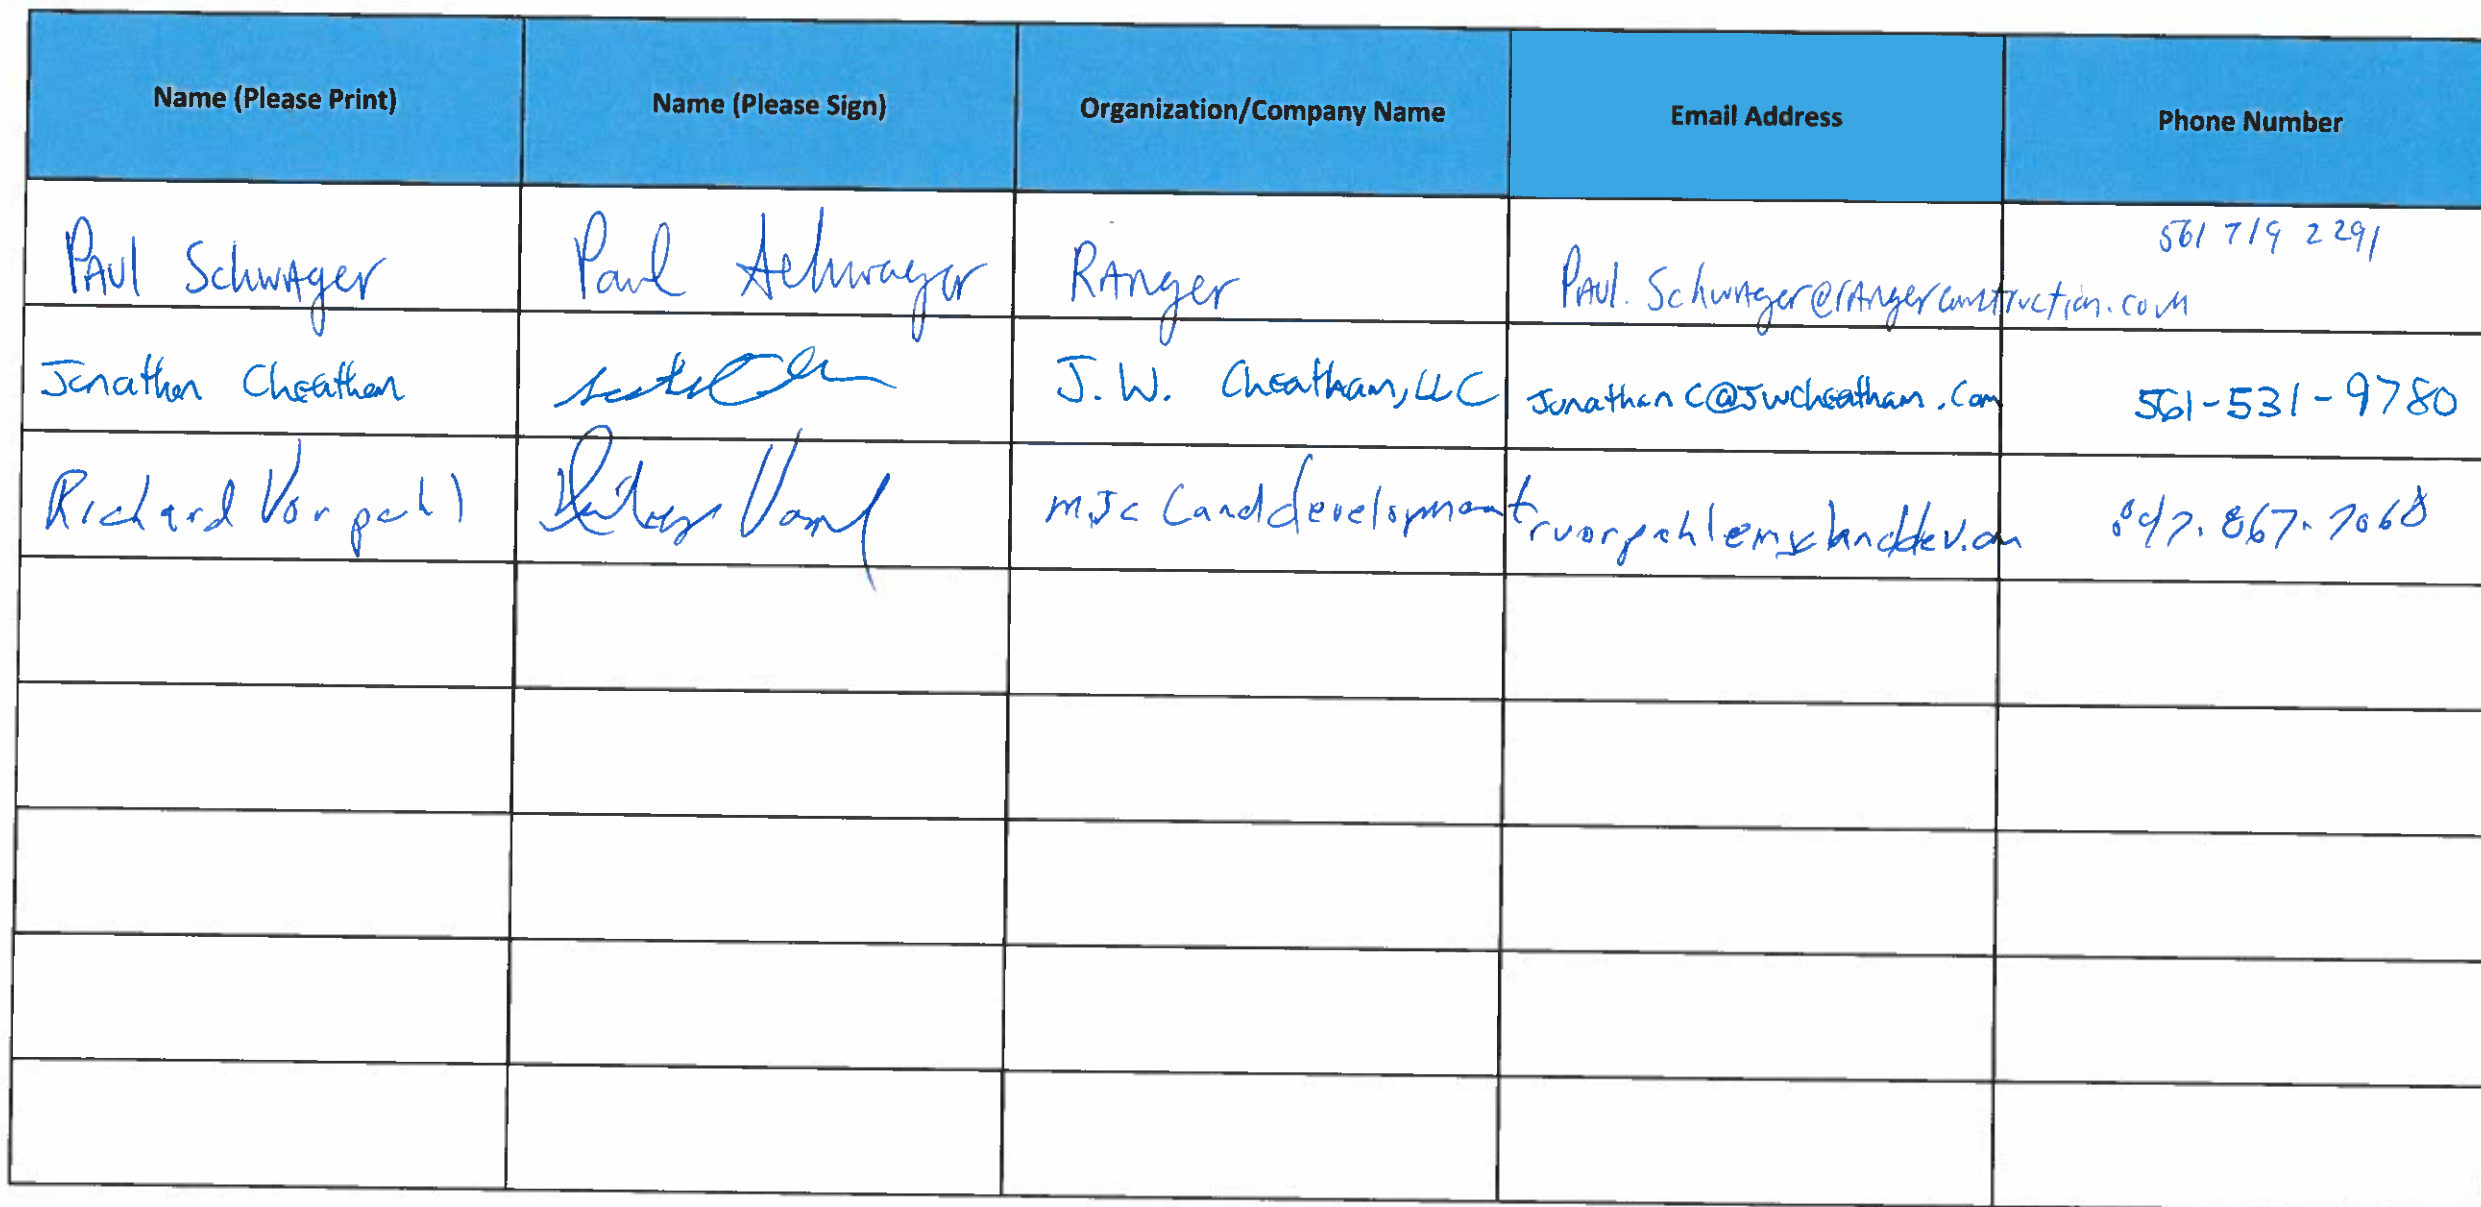 Name (Please Print) Name (Please Sign) Organization/Company Name Email Address Phone Number
PAul SchwAger Paul Schwager RAnger PAul.SchwAger@rAngerconstruction.com 561 719 2291
Jonathan Cheatham J.W. Cheatham, LLC JonathanC@Jwcheatham.com 561-531-9780
Richard Vorpahl MJC Land development 867.7068